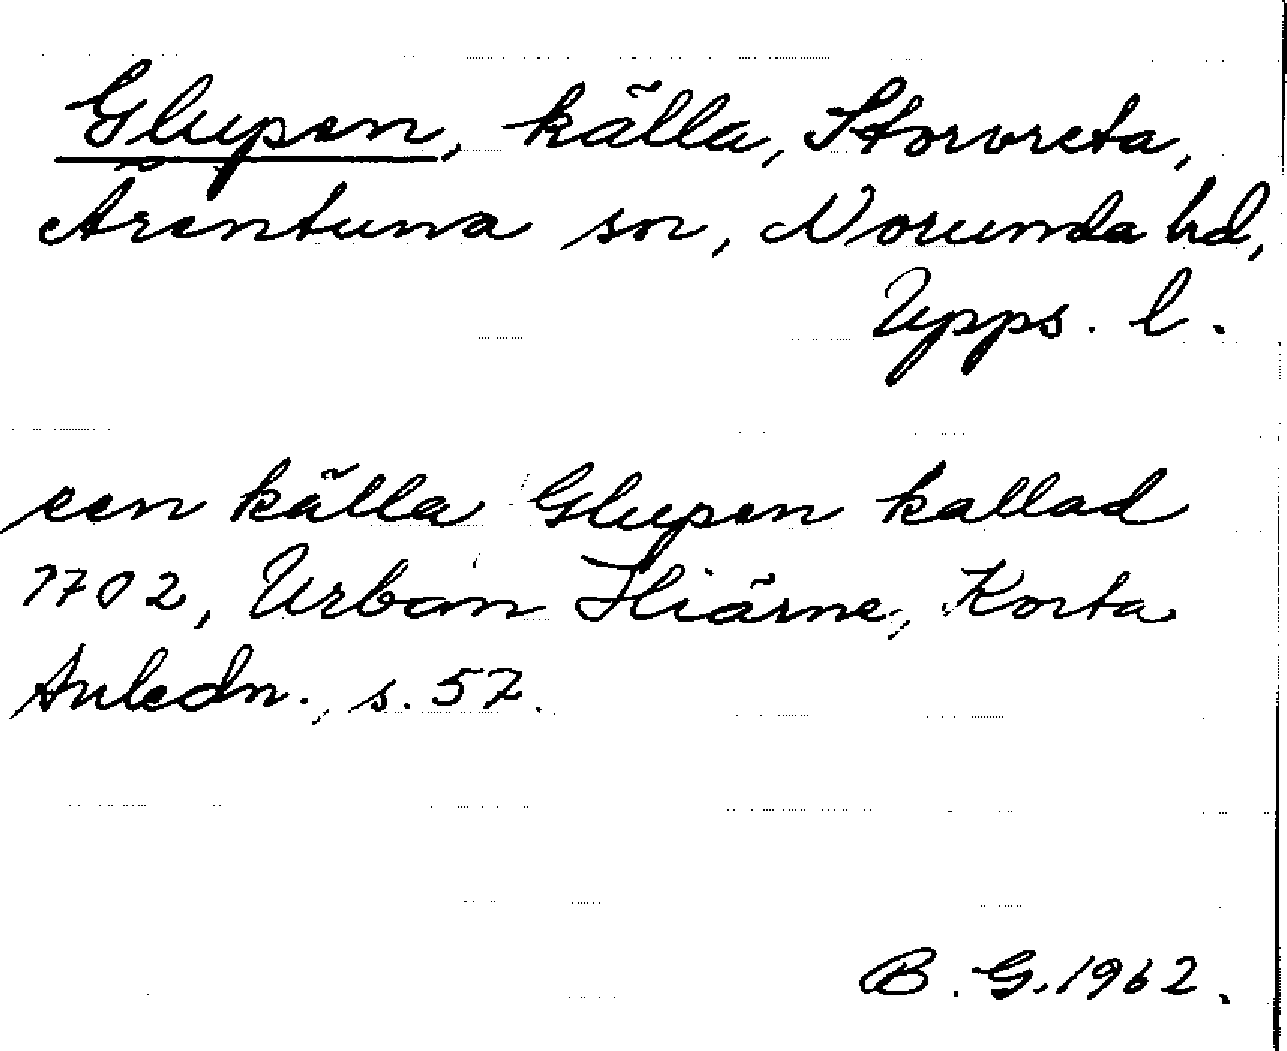 Glupen, källa, Storvreta,
Ärentuna sn, Norunda hd,
Upps. l.
een källa Glupen kallad
1702, Urban Hiärne, Korta
Anledn., s. 57.
B. G. 1962.